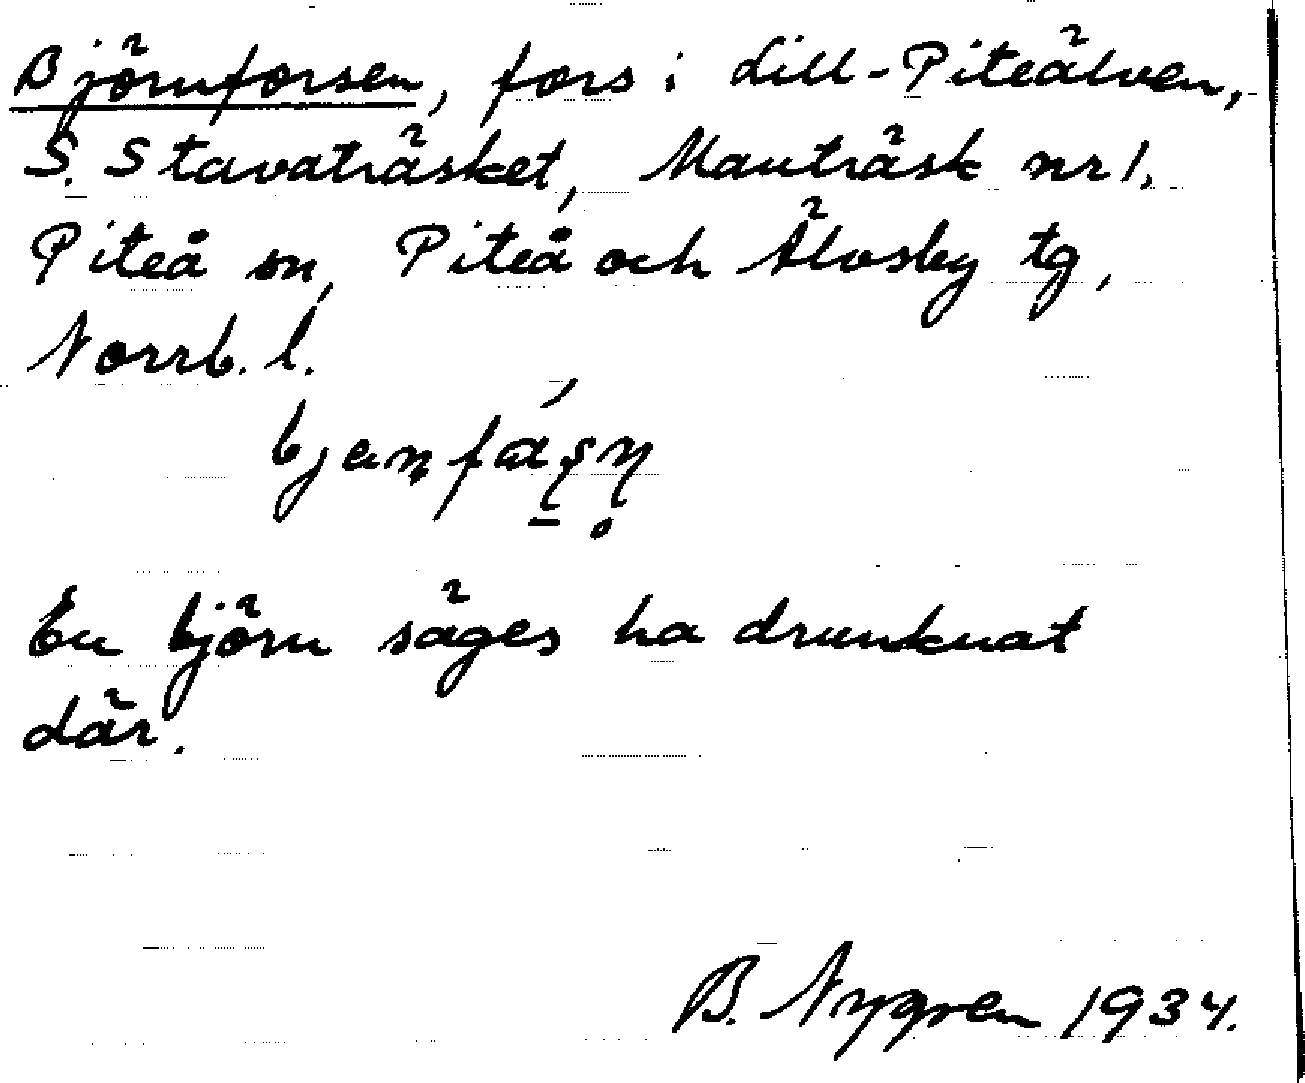 Björnforsen, fors i Lill-Piteälven,
S. Stavaträsket, Mauträsk nr 1,
Piteå sn, Piteå och Älvsby tg,
Norrb. l.
En björn säges ha drunknat
där.
B. Nygren 1934.